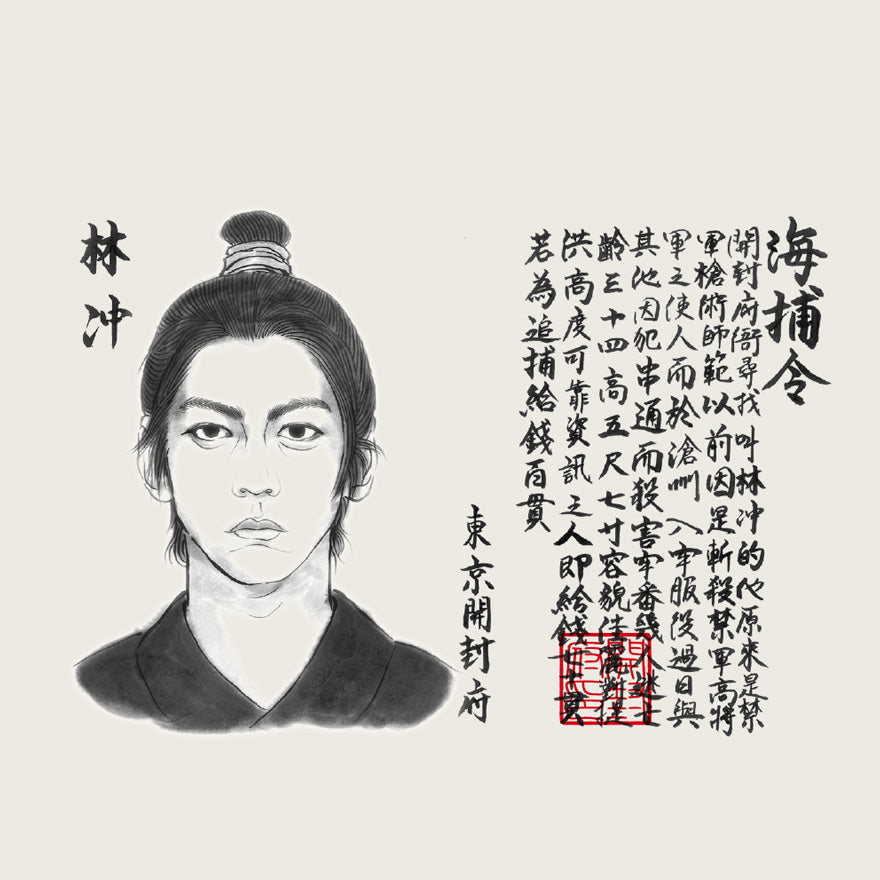 海捕令
開封府衙尋找叫林冲的他原來是禁
軍槍術師範以前因是斬殺禁軍高將
軍之使人而於滄州入牢服役過日與
其他因犯串通而殺害牢番幾人逃亡
齡三十四高五尺七寸容貌佳麗對提
洪高度可靠資訊之人即給錢廿貫
若為追捕給錢百貫
東京開封府
林冲